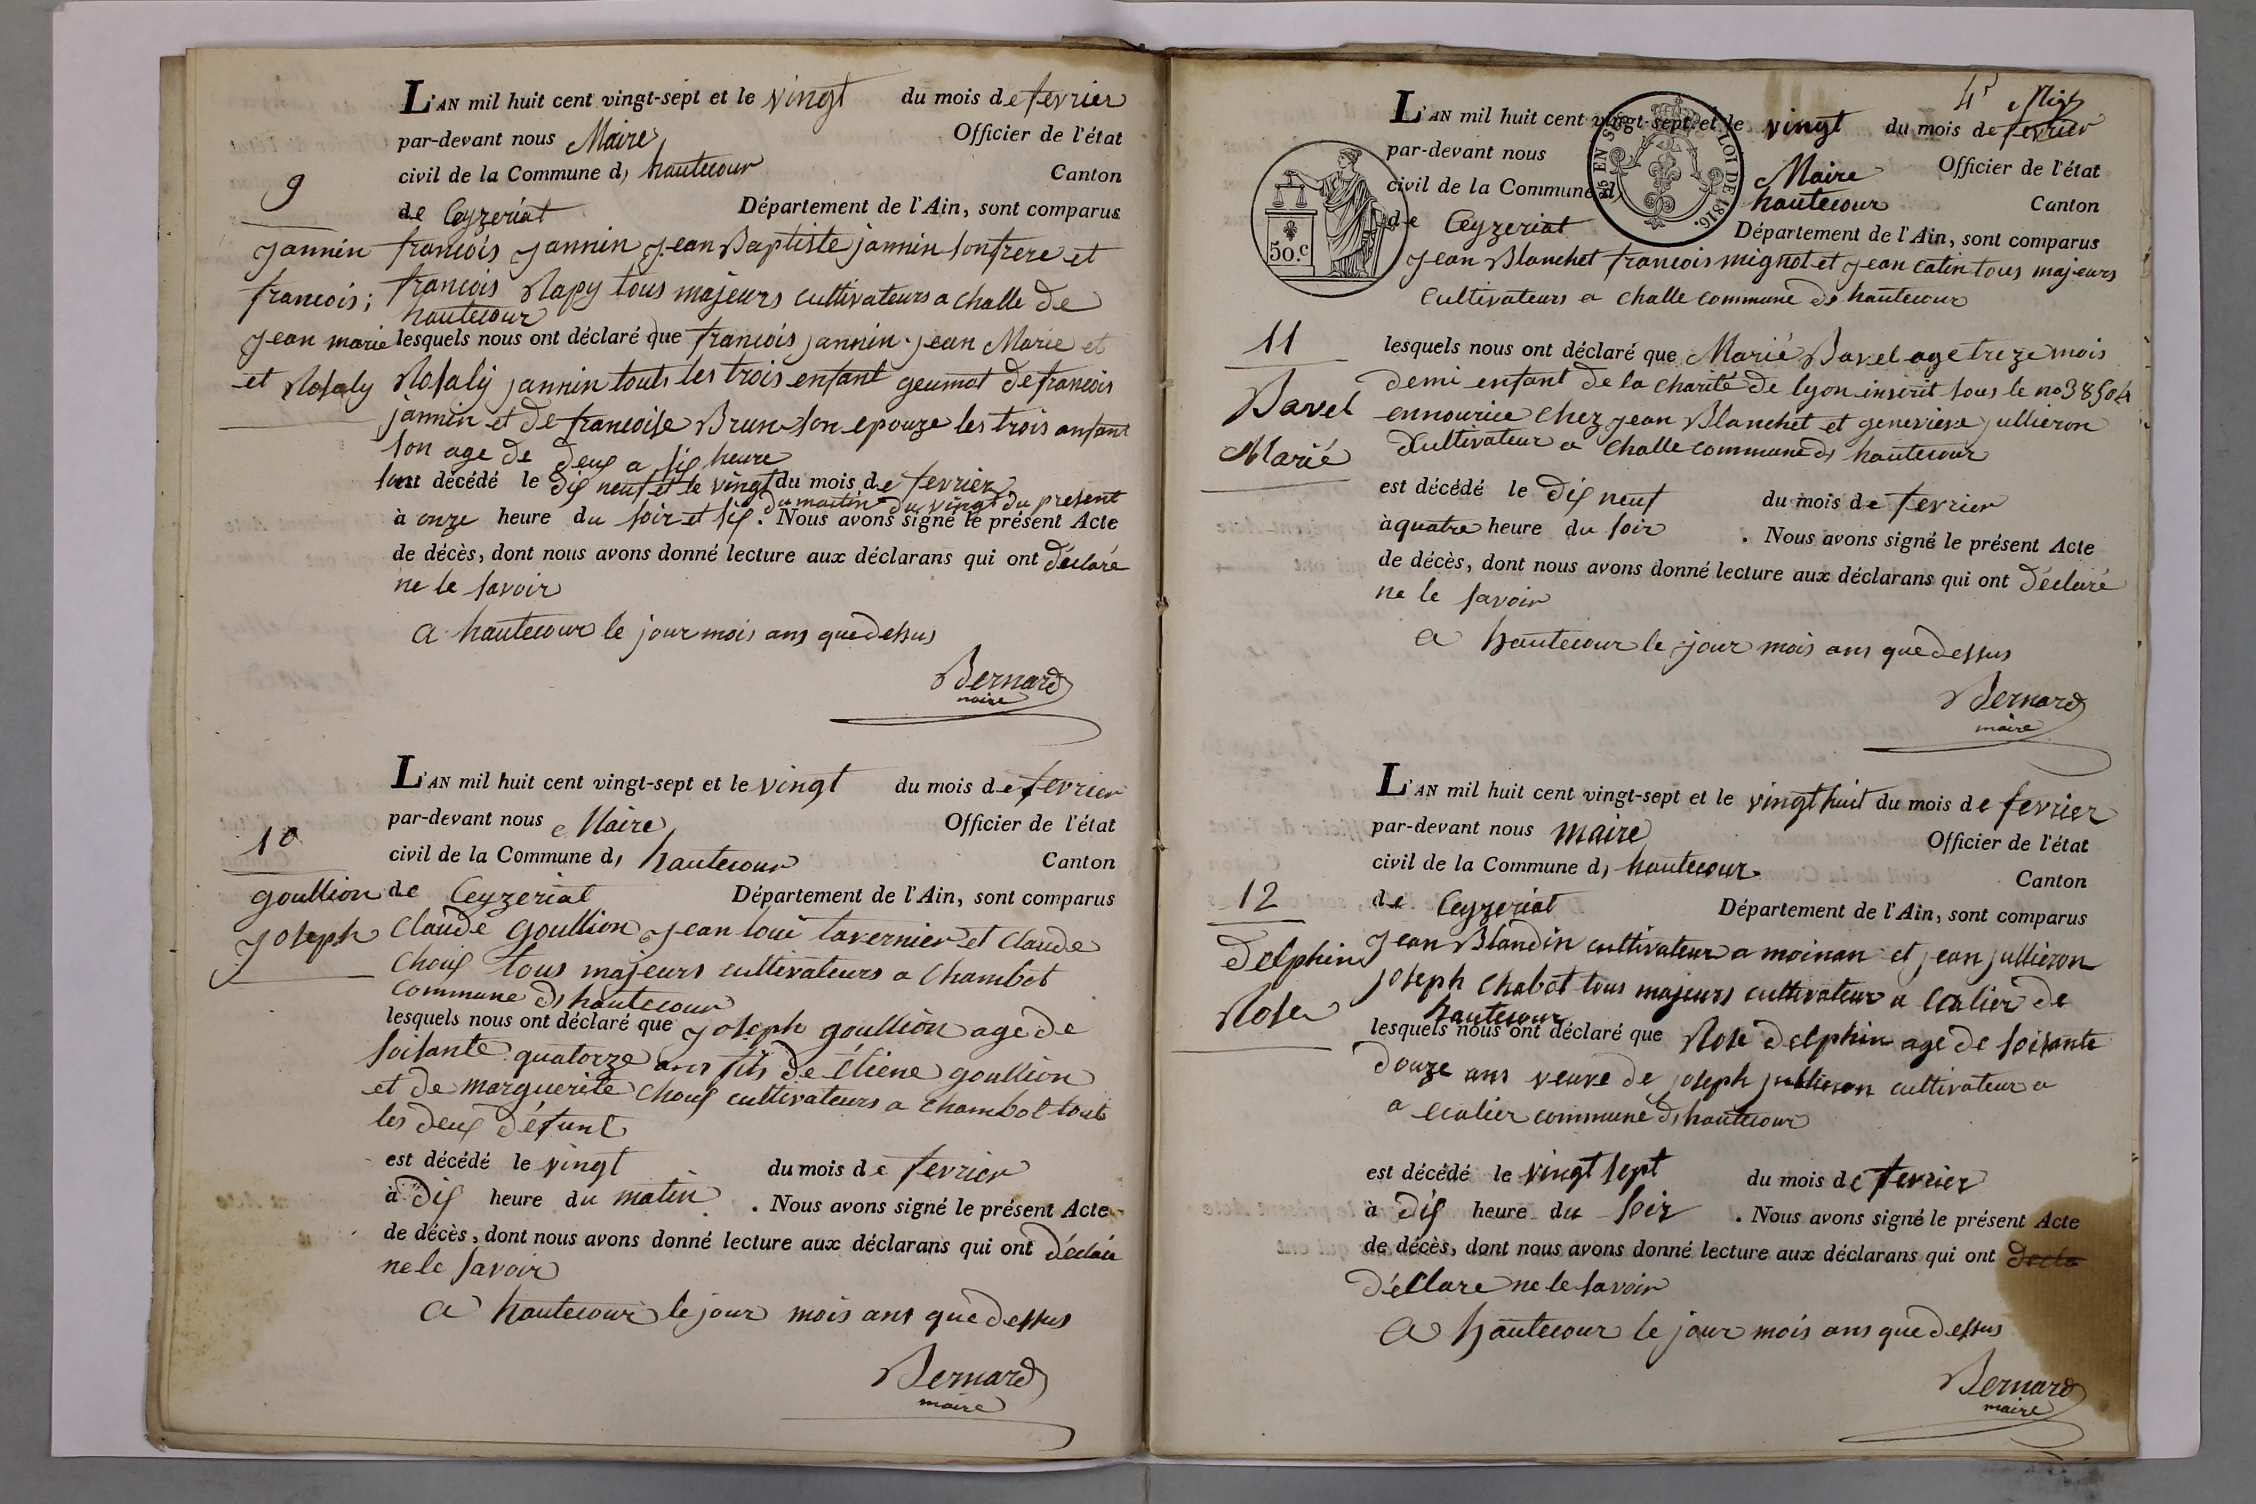 L'AN mil huit cent vingt-sept et le vingt du mois de fevrier
par-devant nous Maire Officier de l'état
civil de la Commune d, hautecour Canton
9
de Ceyzeriat Département de l'Ain, sont comparus
jannin françois jannin jean Baptiste jannin son frere et
francois; francois Rapy tous majeurs cultivateurs a challe de
hautecour
jean marie lesquels nous ont déclaré que francois jannin jean Marie et
et Rosaly Rosaly jannin touts les trois enfant geumot de francois
jannin et de francoise Brun son epouze les trois anfant
son age de deux a six heure
sont décédé le dix neuf et le vingt du mois de fevrier
du matin du vingt du present
à onze heure du soir et six. Nous avons signé le présent Acte
de décès, dont nous avons donné lecture aux déclarans qui ont déclaré
ne le savoir
a hautecour le jour mois ans que dessus
Bernard
maire
L'AN mil huit cent vingt-sept et le vingt du mois de fevrier
par-devant nous Maire Officier de l'état
10
civil de la Commune d, hautecour Canton
goullion de Ceyzeriat Département de l'Ain, sont comparus
joseph Claude goullion jean loui tavernier et Claude
Choux tous majeurs cultivateurs a Chambot
Commune d, hautecour
lesquels nous ont déclaré que joseph goullion age de
soisante quatorze ans fils de Etiene goullion
et de marguerite Choux cultivateurs a Chambot touts
les deux défunt
est décédé le vingt du mois de fevrier
à dix heure du matin. Nous avons signé le présent Acte
de décès, dont nous avons donné lecture aux déclarans qui ont déclaré
ne le savoir
a hautecour le jour mois ans que dessus
Bernard
maire
4
L'AN mil huit cent vingt-sept et le vingt du mois de fevrier
par-devant nous Maire Officier de l'état
civil de la Commune d, hautecour Canton
de Ceyzeriat Département de l'Ain, sont comparus
EN SUS LOI DE 1816.
50.c
jean Blanchet francois mignot et jean catin tous majeurs
Cultivateurs a challe commune d, hautecour
11
lesquels nous ont déclaré que Marié Bavel age treze mois
Bavel
demi enfant de la charité de lyon inscrit sous le no 38504
ennourice chez jean Blanchet et genevieve jullieron
Marié
Cultivateur a challe commune d, hautecour
est décédé le dix neuf du mois de fevrier
à quatre heure du soir. Nous avons signé le présent Acte
de décès, dont nous avons donné lecture aux déclarans qui ont déclaré
ne le savoir
a hautecour le jour mois ans que dessus
Bernard
maire
L'AN mil huit cent vingt-sept et le vingt huit du mois de fevrier
par-devant nous maire Officier de l'état
civil de la Commune d, hautecour Canton
12
de Ceyzeriat Département de l'Ain, sont comparus
Delphin jean Blandin cultivateur a moinan et jean jullieron
joseph Chabot tous majeurs cultivateur a Ecalier de
Rose hautecour
lesquels nous ont déclaré que Rose delphin age de soisante
douze ans veuve de joseph jullieron cultivateur a
a ecalier commune d, hautecour
est décédé le vingt sept du mois de fevrier
à dix heure du soir. Nous avons signé le présent Acte
de décès, dont nous avons donné lecture aux déclarans qui ont decla
déClare ne le savoir
a hautecour le jour mois ans que dessus
Bernard
maire